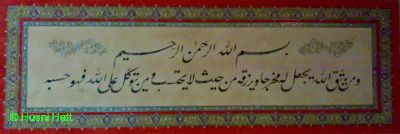 بسم الله الرحمن الرحيم
ومن يتق الله يجعل له مخرجا ويرزقه من حيث لا يحتسب ومن يتوكل على الله فهو حسبه
© Husni Hatt